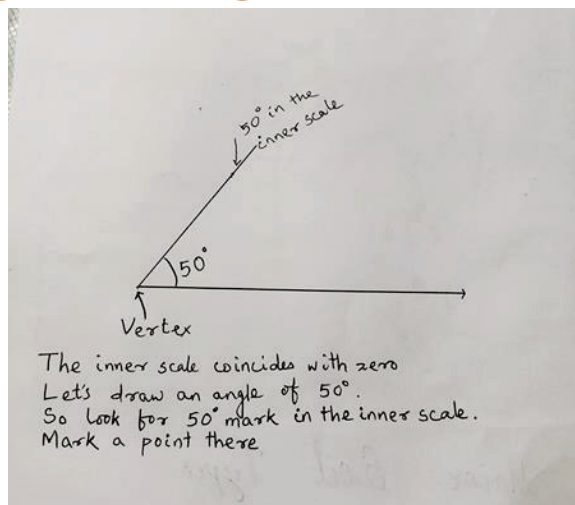 50° in the
inner scale
50°
Vertex
The inner scale coincides with zero
Let's draw an angle of 50°.
So look for 50° mark in the inner scale.
Mark a point there